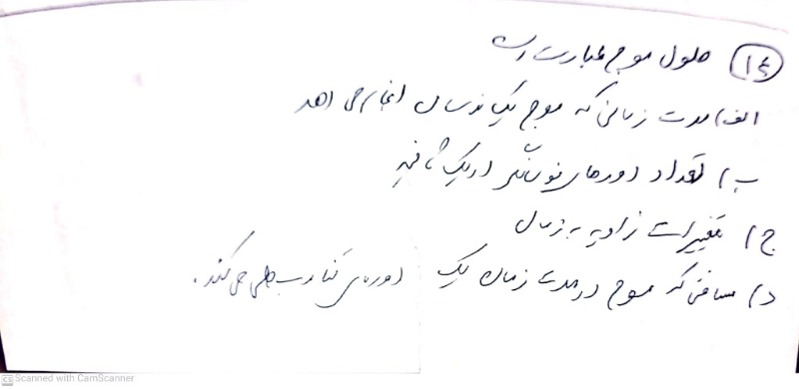 ۱۴) طول موج عبارت است
الف) مدت زمانی که موج یک نوسان انجام می دهد
ب) تعداد دورهای نوسانی در یک ثانیه
ج) تغییرات زاویه به زمان
د) مسافتی که موج در مدت زمان یک دوره‌ی تناوب طی می کند.
Scanned with CamScanner